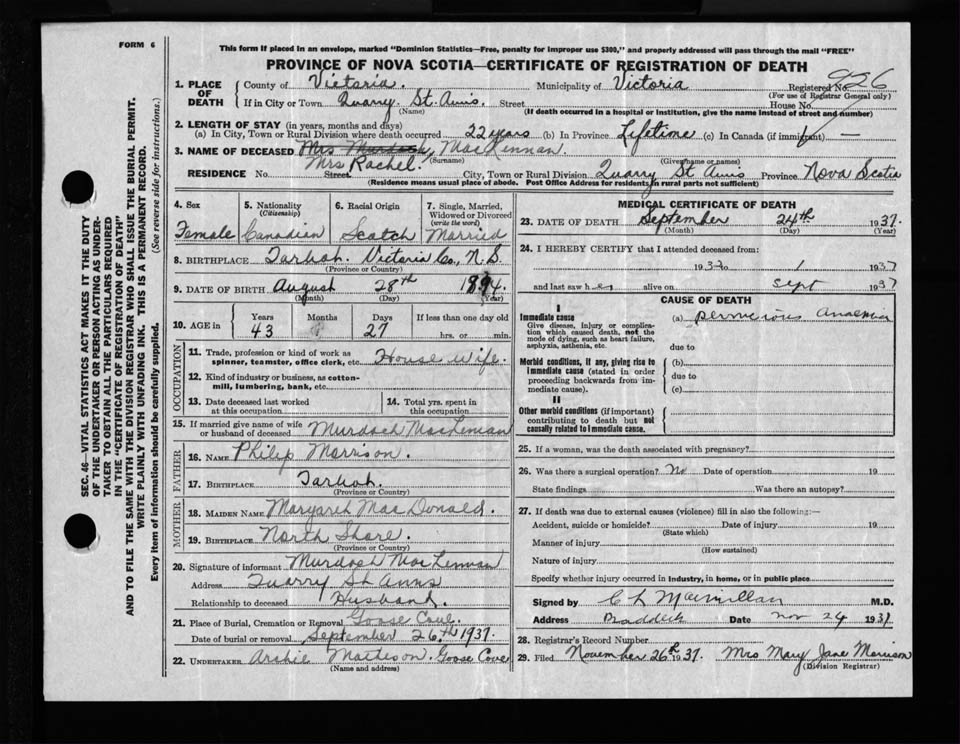 FORM 6
This form if placed in an envelope, marked "Dominion Statistics—Free, penalty for improper use $300," and properly addressed will pass through the mail "FREE"
PROVINCE OF NOVA SCOTIA—CERTIFICATE OF REGISTRATION OF DEATH
SEC. 46—VITAL STATISTICS ACT MAKES IT THE DUTY
OF THE UNDERTAKER OR PERSON ACTING AS UNDER-
TAKER TO OBTAIN ALL THE PARTICULARS REQUIRED
IN THE "CERTIFICATE OF REGISTRATION OF DEATH"
AND TO FILE THE SAME WITH THE DIVISION REGISTRAR WHO SHALL ISSUE THE BURIAL PERMIT.
WRITE PLAINLY WITH UNFADING INK. THIS IS A PERMANENT RECORD.
Every item of information should be carefully supplied. (See reverse side for instructions.)
1. PLACE OF DEATH
County of Victoria. Municipality of Victoria Registered No. 926
(For use of Registrar General only)
If in City or Town Quarry. St. Anns. Street House No.
(Name) (If death occurred in a hospital or institution, give the name instead of street and number)
2. LENGTH OF STAY (in years, months and days)
(a) In City, Town or Rural Division where death occurred 22 years (b) In Province Lifetime (c) In Canada (if immigrant) —
3. NAME OF DECEASED Mrs Murdoch, MacLennan.
Mrs Rachel. (Surname) (Given name or names)
RESIDENCE No. Street City, Town or Rural Division Quarry St Anns Province Nova Scotia
(Residence means usual place of abode. Post Office Address for residents in rural parts not sufficient)
4. Sex Female
5. Nationality (Citizenship) Canadian
6. Racial Origin Scotch
7. Single, Married, Widowed or Divorced (write the word) Married
8. BIRTHPLACE Tarbot. Victoria Co., N.S.
(Province or Country)
9. DATE OF BIRTH August 28th 1894.
(Month) (Day) (Year)
10. AGE in Years 43 Months Days 27 If less than one day hrs. or min.
OCCUPATION
11. Trade, profession or kind of work as spinner, teamster, office clerk, etc. House wife.
12. Kind of industry or business, as cotton-mill, lumbering, bank, etc.
13. Date deceased last worked at this occupation
14. Total yrs. spent in this occupation
15. If married give name of wife or husband of deceased Murdoch MacLennan
FATHER
16. NAME Philip Morrison.
17. BIRTHPLACE Tarbot.
(Province or Country)
MOTHER
18. MAIDEN NAME Margaret MacDonald.
19. BIRTHPLACE North Shore.
(Province or Country)
20. Signature of informant Murdoch MacLennan
Address Quarry St Anns
Relationship to deceased Husband.
21. Place of Burial, Cremation or Removal Goose Cove.
Date of burial or removal September 26th 1937.
22. UNDERTAKER Archie Matheson. Goose Cove
(Name and address)
MEDICAL CERTIFICATE OF DEATH
23. DATE OF DEATH September 24th 1937.
(Month) (Day) (Year)
24. I HEREBY CERTIFY that I attended deceased from:
1937 to 1 1937
and last saw her alive on Sept 1937
CAUSE OF DEATH
I
Immediate cause
Give disease, injury or complication which caused death, not the mode of dying, such as heart failure, asphyxia, asthenia, etc.
(a) pernicious Anaemia
due to
Morbid conditions, if any, giving rise to immediate cause (stated in order proceeding backwards from immediate cause).
(b)
due to
(c)
II
Other morbid conditions (if important) contributing to death but not causally related to immediate cause.
25. If a woman, was the death associated with pregnancy?
26. Was there a surgical operation? No Date of operation 19
State findings Was there an autopsy?
27. If death was due to external causes (violence) fill in also the following:—
Accident, suicide or homicide? Date of injury 19
(State which)
Manner of injury
(How sustained)
Nature of injury
Specify whether injury occurred in industry, in home, or in public place
Signed by C L Macmillan M.D.
Address Baddeck Date Nov 24 1937
28. Registrar's Record Number
29. Filed November 26th 1937. Mrs Mary Jane Morrison
(Division Registrar)